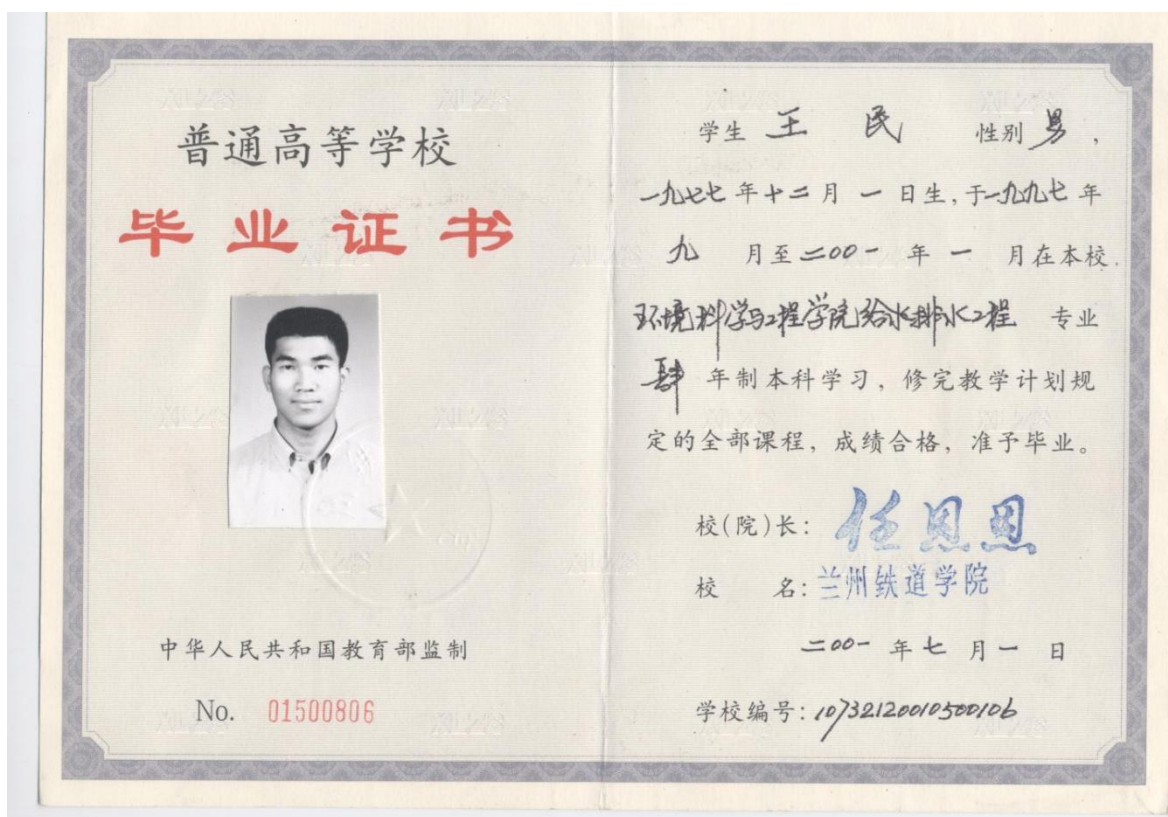 普通高等学校
毕业证书
中华人民共和国教育部监制
No. 01500806
学生 王 民 性别 男，
一九七七年十二月一日生，于一九九七年
九 月至二00一年 一 月在本校
环境科学与工程学院给水排水工程 专业
肆 年制本科学习，修完教学计划规
定的全部课程，成绩合格，准予毕业。
校(院)长：任恩恩
校 名：兰州铁道学院
二00一 年 七 月 一 日
学校编号：10732120010500106